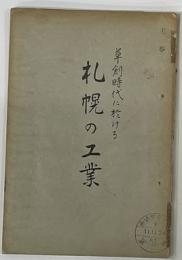 草創時代に於ける
札幌の工業